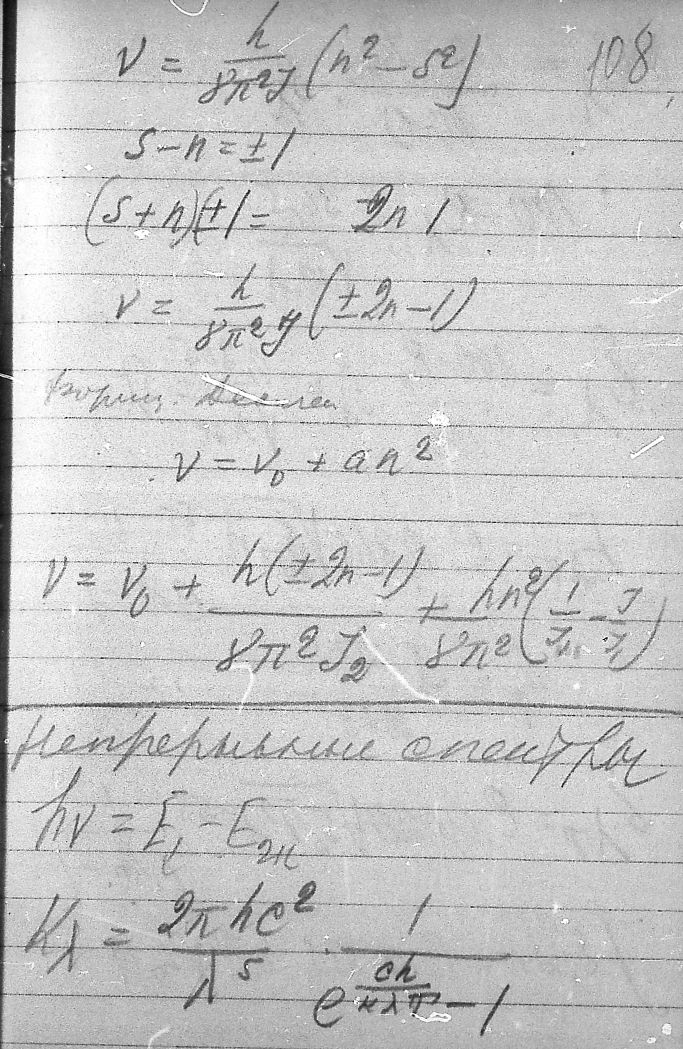 108
ν = h/8π²J (n² − s²)
s − n = ±1
(s + n)(±1 = 2n 1
ν = h/8π²J (± 2n − 1)
Форм.
ν = ν₀ + an²
ν = ν₀ + h(± 2n − 1)/8π²J₂ + hn²/8π² (1/J₂ − 1/J₁)
Непрерывные спектры
hν = E − E
K_λ = 2πhc²/λ⁵ · 1/e^(ch/κλT) − 1